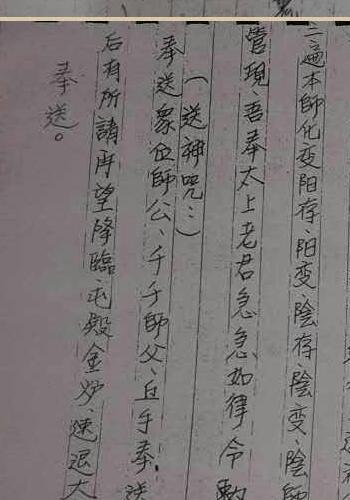 三遍本師化变阳存、阳变、陰存、陰变、陰師
管現、吾奉太上老君急急如律令勅
(送神咒:)
奉送象位師公、千千師父、丘千奉、送
后有所請再望降臨、屯殿金炉、速退大
奉送。